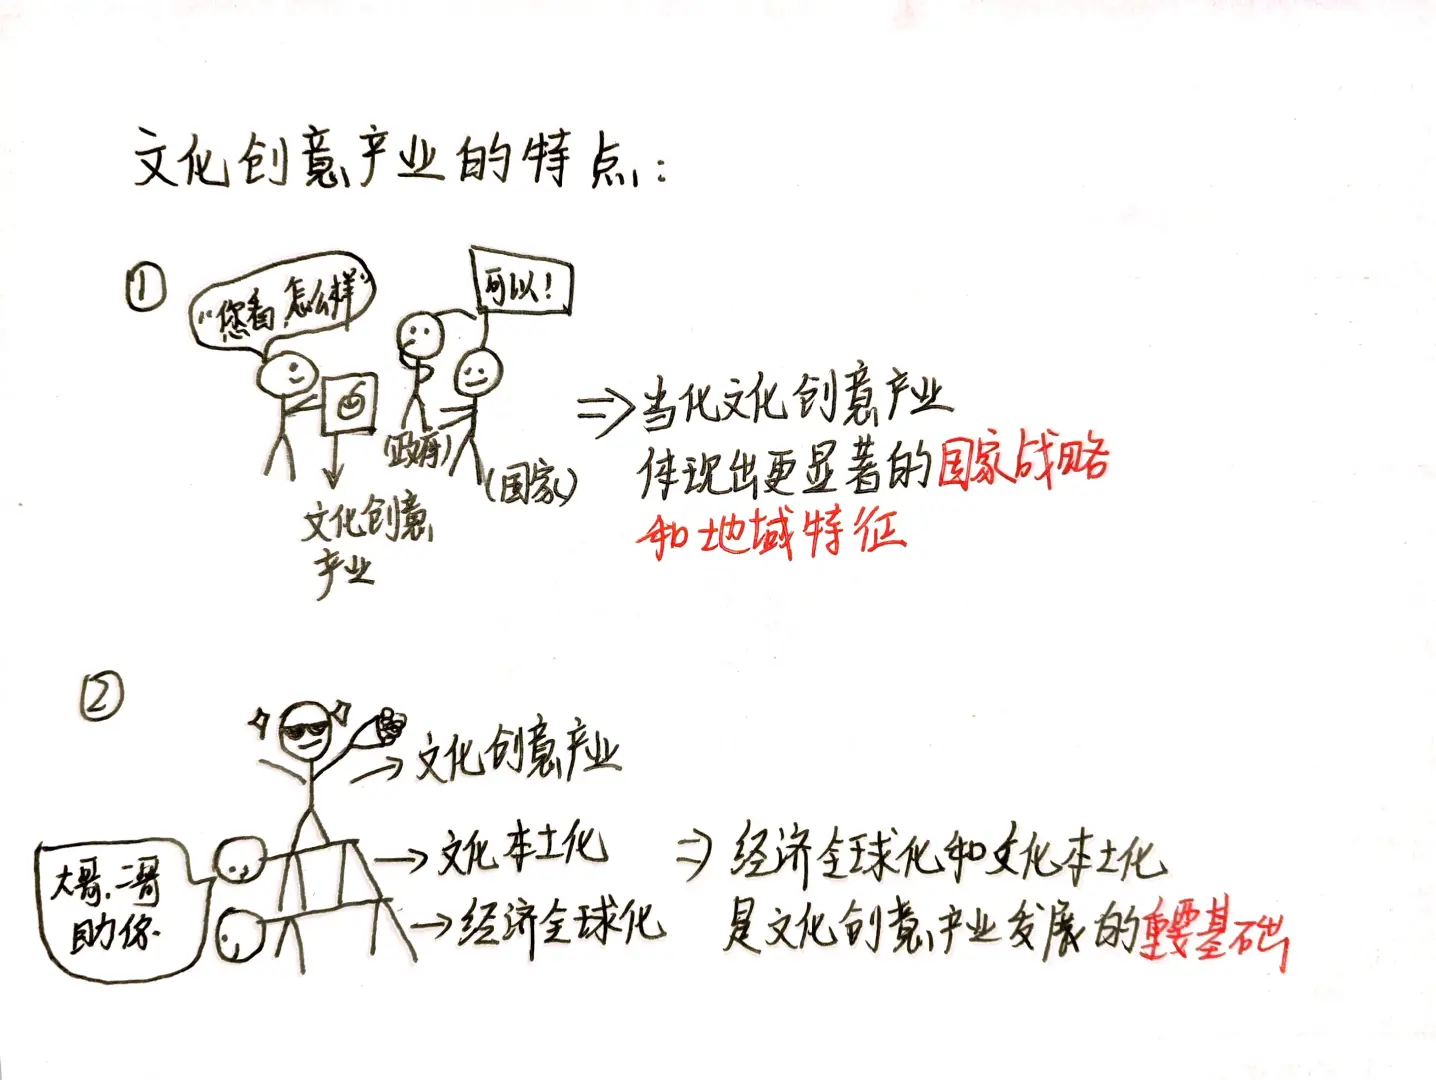 文化创意产业的特点：
①
“您看,怎么样”
可以！
(政府)
(国家)
文化创意
产业
⇒当化文化创意产业
体现出更显著的国家战略
和地域特征
②
→文化创意产业
→文化本土化
→经济全球化
大哥、二哥
助你.
⇒经济全球化和文化本土化
是文化创意产业发展的重要基础